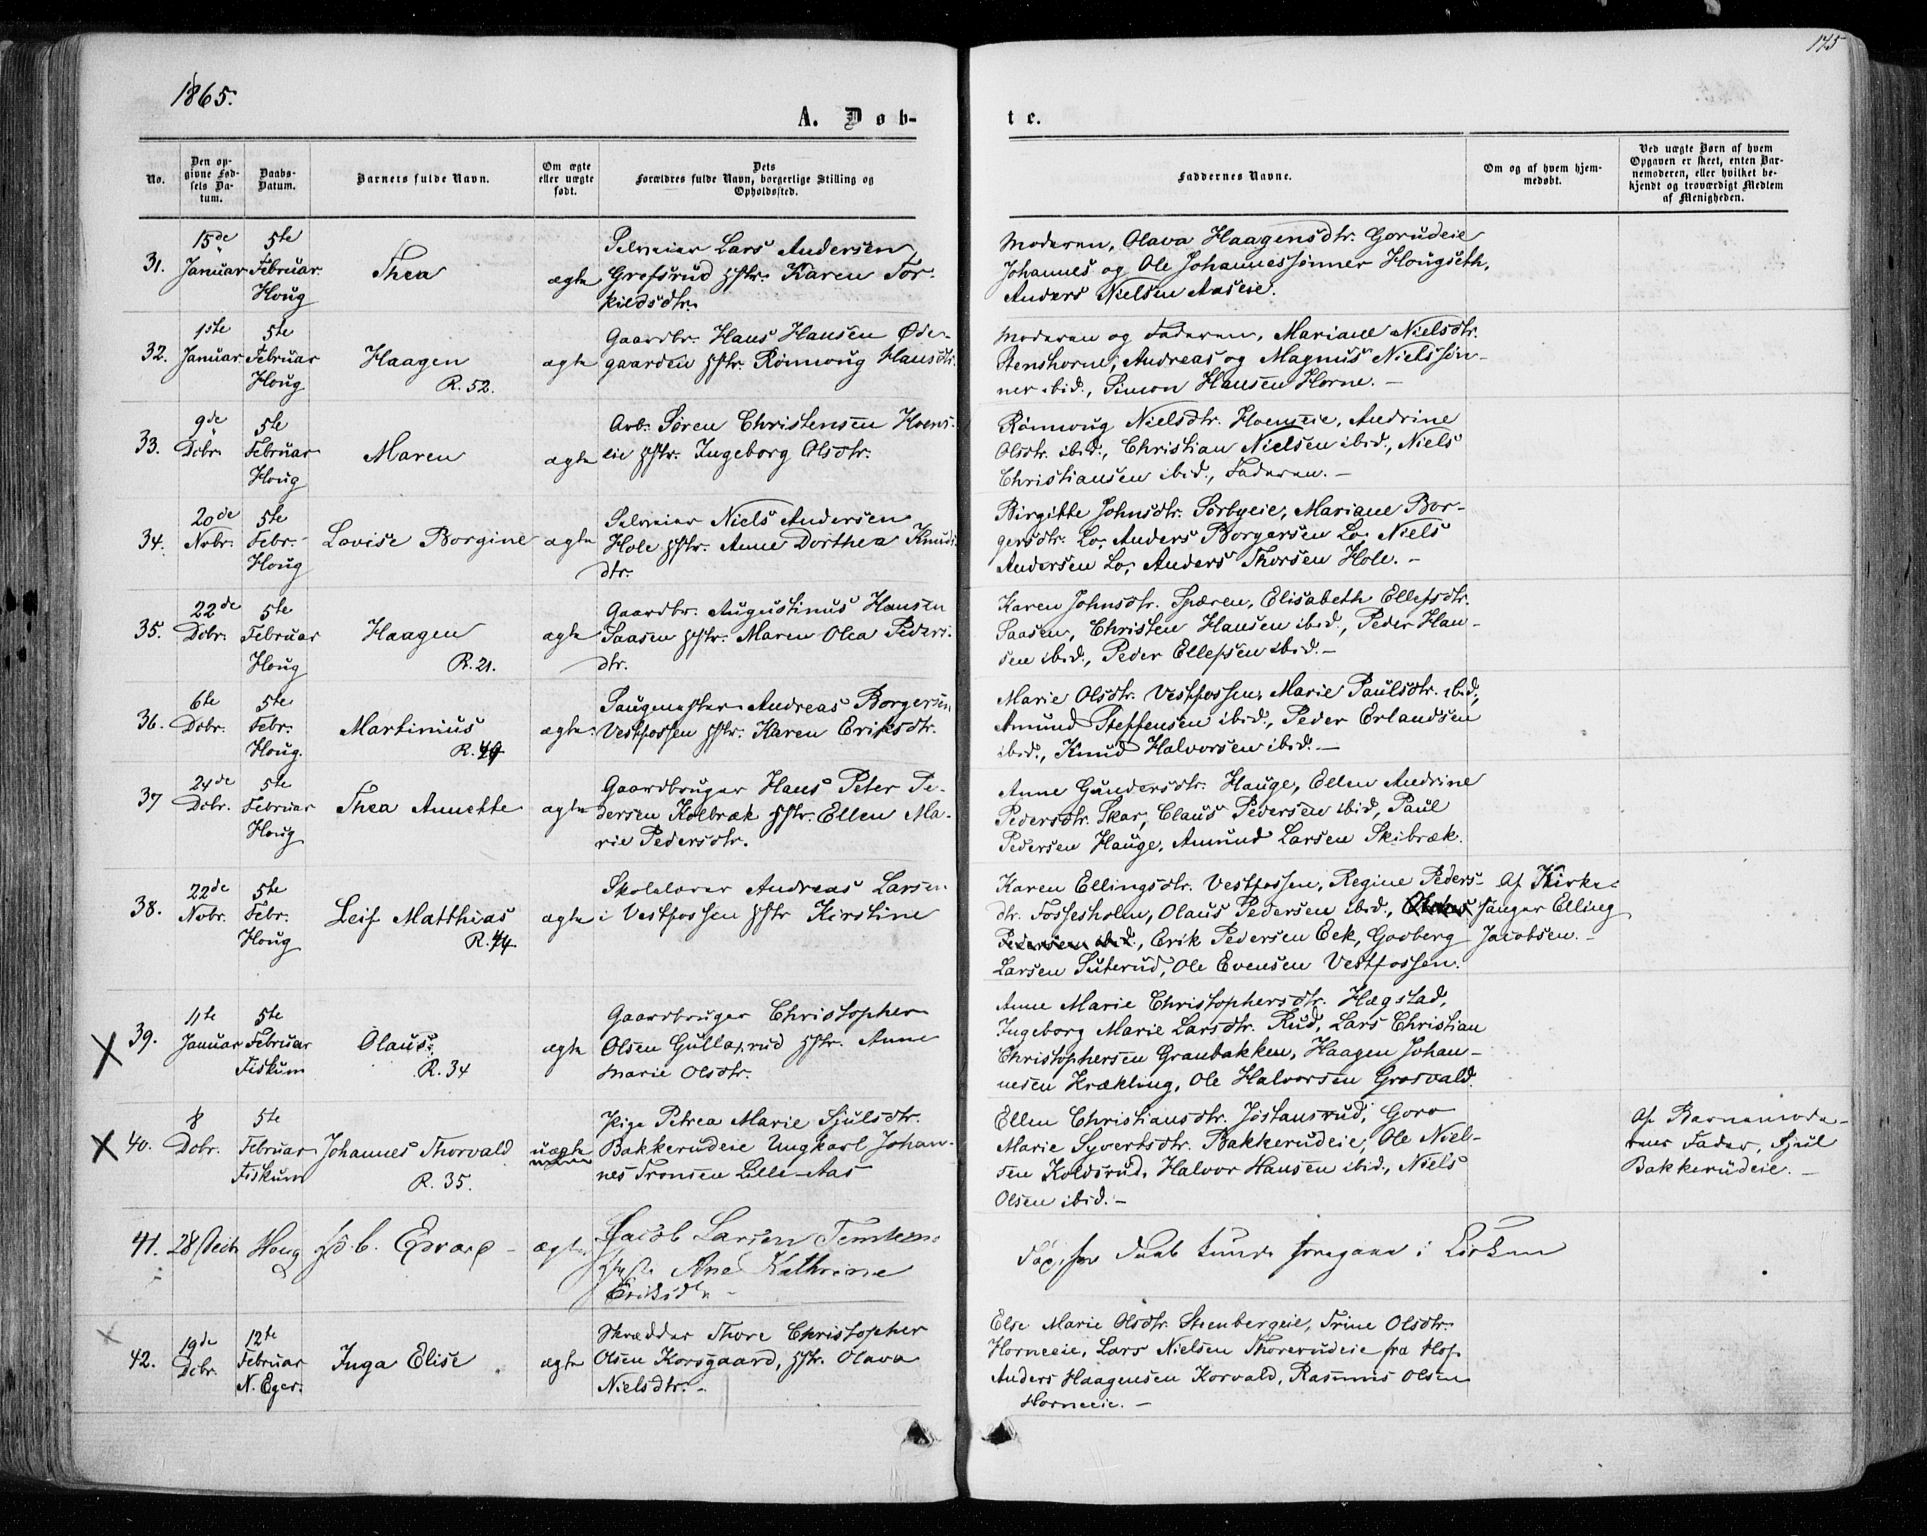 1865.
175
A. Døb-
te.
No.
Den op-
givne Fød-
sels Da-
tum.
Daabs-
Datum.
Barnets fulde Navn.
Om ægte
eller uægte
født.
Dets
Forældres fulde Navn, borgerlige Stilling og
Opholdssted.
Faddernes Navne.
Om og af hvem hjem-
medøbt.
Ved uægte Børn af hvem
Opgaven er skeet, enten Bar-
nemoderen, eller hvilket be-
kjendt og troværdigt Medlem
af Menigheden.
31.
15de
Januar
5te
Februar
Houg
Thea
ægte
Selveier Lars Andersen
Grofsrud Hstr. Karen Tor-
kildsdtr.
Moderen, Olava Haagensdtr. Gorudeie
Johannes og Ole Johannessønner Hougseth,
Anders Nielsen Aaseie.
32.
1ste
Januar
5te
Februar
Houg
Haagen
R. 52.
ægte
Gaardbr. Hans Hansen Øde-
gaarden Hstr. Rønnoug Hansdtr.
Moderen og Faderen, Mariane Nielsdtr.
Stenshorne, Andreas og Magnus Nielssøn-
ner ibid., Simon Hansen Horne. –
33.
9de
Dcbr.
5te
Februar
Houg
Maren
ægte
Arb. Søren Christensen Hoens-
eie Hstr. Ingeborg Olsdtr.
Rønnoug Nielsdtr. Hoenseie, Andrine
Olsdtr. ibid., Christian Nielsen ibid., Niels
Christiansen ibid., Faderen. –
34.
20de
Nvbr.
5te
Febr.
Houg
Lovise Borgine
ægte
Selveier Niels Andersen
Hole Hstr. Anne Dorthea Knuds-
dtr.
Birgitte Johnsdtr. Sørbyeie, Mariane Bor-
gersdtr. Lo, Anders Borgersen Lo, Niels
Andersen Lo, Anders Thorsen Hole. –
35.
22de
Dcbr.
5te
Februar
Houg
Haagen
R. 21.
ægte
Gaardbr. Augustinus Hansen
Saasen Hstr. Maren Olea Peders-
dtr.
Karen Johnsdtr. Spæren, Elisabeth Ellefsdtr.
Saasen, Christen Hansen ibid., Peder Han-
sen ibid., Peder Ellefsen ibid. –
36.
6te
Dcbr.
5te
Febr.
Houg.
Martinius
R.
ægte.
Saugmester Andreas Borgersen
Vestfossen Hstr. Karen Eriksdtr.
Marie Olsdtr. Vestfossen, Marie Paulsdtr. ibid.,
Amund Steffensen ibid., Peder Erlandsen
ibid., Knud Halvorsen ibid. –
37
24de
Dcbr.
5te
Februar
Houg
Thea Annette
ægte
Gaardbruger Hans Peter Pe-
dersen Kolbræk Hstr. Ellen Ma-
rie Pedersdtr.
Anne Gundersdtr. Hauge, Ellen Andrine
Pedersdtr. Skar, Claus Pedersen ibid, Paul
Pedersen Hauge, Amund Larsen Skibræk.
38.
22de
Nvbr.
5te
Febr.
Houg
Leif Matthias
R. 44
ægte
Skolelærer Andreas Larsen
i Vestfossen Hstr Kirstine
Karen Ellingsdtr. Vestfossen, Regine Peders-
dtr. Fossesholm, Olaus Pedersen ibid.,
Pedersen ibid., Erik Pedersen Eek, Godberg
Larsen Suterud, Ole Evensen Vestfossen.
Af Kirke-
sanger Elling
Jacobsen. –
X
39.
11te
Januar
5te
Februar
Fiskum
Olaus.
R. 34
ægte
Gaardbruger Christopher
Olsen Gullaxrud Hstr. Anne
Marie Olsdtr.
Anne Marie Christophersdtr. Hægstad,
Ingeborg Marie Larsdtr. Rud, Lars Christian
Christophersen Granbakken, Haagen Johan-
nesen Krækling, Ole Halvorsen Grosvald.
X
40.
8
Dcbr.
5te
Februar
Fiskum
Johannes Thorvald
R. 35.
uægte
Pige Petrea Marie Sjulsdtr.
Bakkerudeie Ungkarl Johan-
nes Tronsen Lille-Aas
Ellen Christiansdtr. Jøstansrud, Goro
Marie Syvertsdtr. Bakkerudeie, Ole Niel-
sen Koldsrud, Halvor Hansen ibid., Niels
Olsen ibid. –
Af Barnemode-
rens Fader, Sjul
Bakkerudeie. –
41.
28 Decbr
Houg
Edvard
ægte
Jacob Larsen
Hstr Ane Kathrine
Eriksdtr –
Død før Daab kunde foregaae i Kirken
x
42.
19de
Dcbr.
12te
Februar
N. Eger.
Inga Elise
ægte
Skrædder Thore Christopher
Olsen Korsgaard, Hstr. Olava
Nielsdtr. –
Else Marie Olsdtr. Steenbergeie, Trine Olsdtr.
Horneeie, Lars Nielsen Thorerudeie fra Hof
Anders Haagensen Korvald, Rasmus Olsen
Horneeie. –